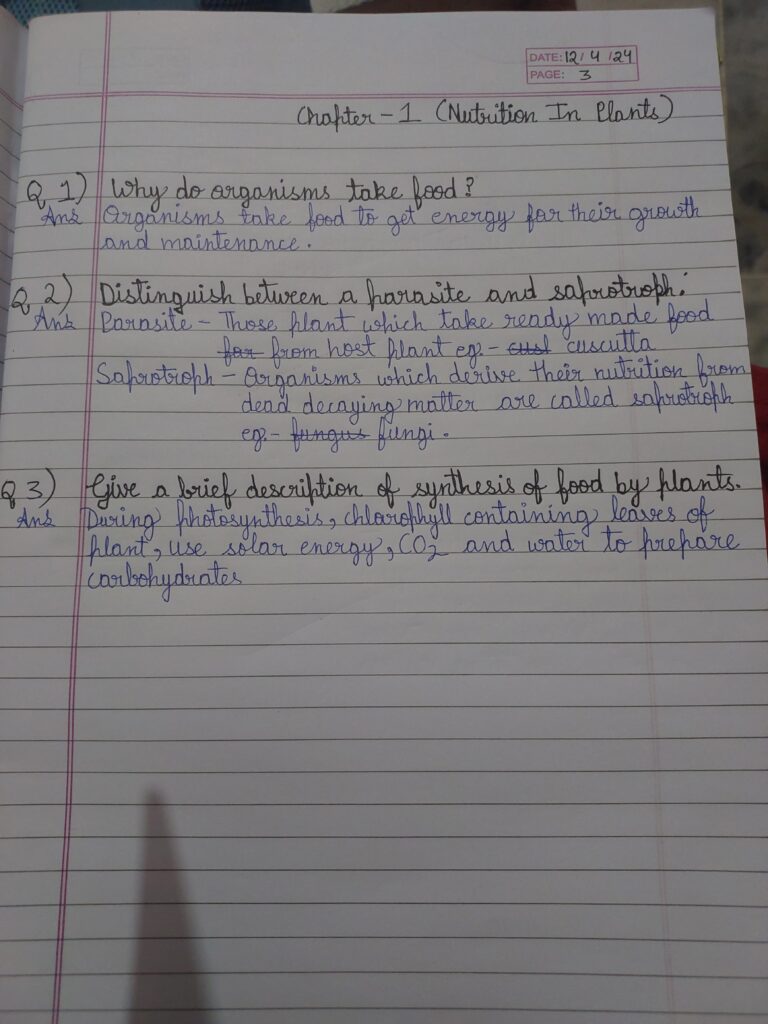 DATE: 12/4/24
PAGE: 3
Chapter - 1 (Nutrition In Plants)
Q 1) Why do organisms take food?
Ans Organisms take food to get energy for their growth
and maintenance.
Q 2) Distinguish between a parasite and saprotroph.
Ans Parasite - Those plant which take ready made food
for from host plant eg.- cust cuscutta
Saprotroph - Organisms which derive their nutrition from
dead decaying matter are called saprotroph
eg.- fungus fungi.
Q 3) Give a brief description of synthesis of food by plants.
Ans During photosynthesis, chlorophyll containing leaves of
plant, use solar energy, CO2 and water to prepare
carbohydrates